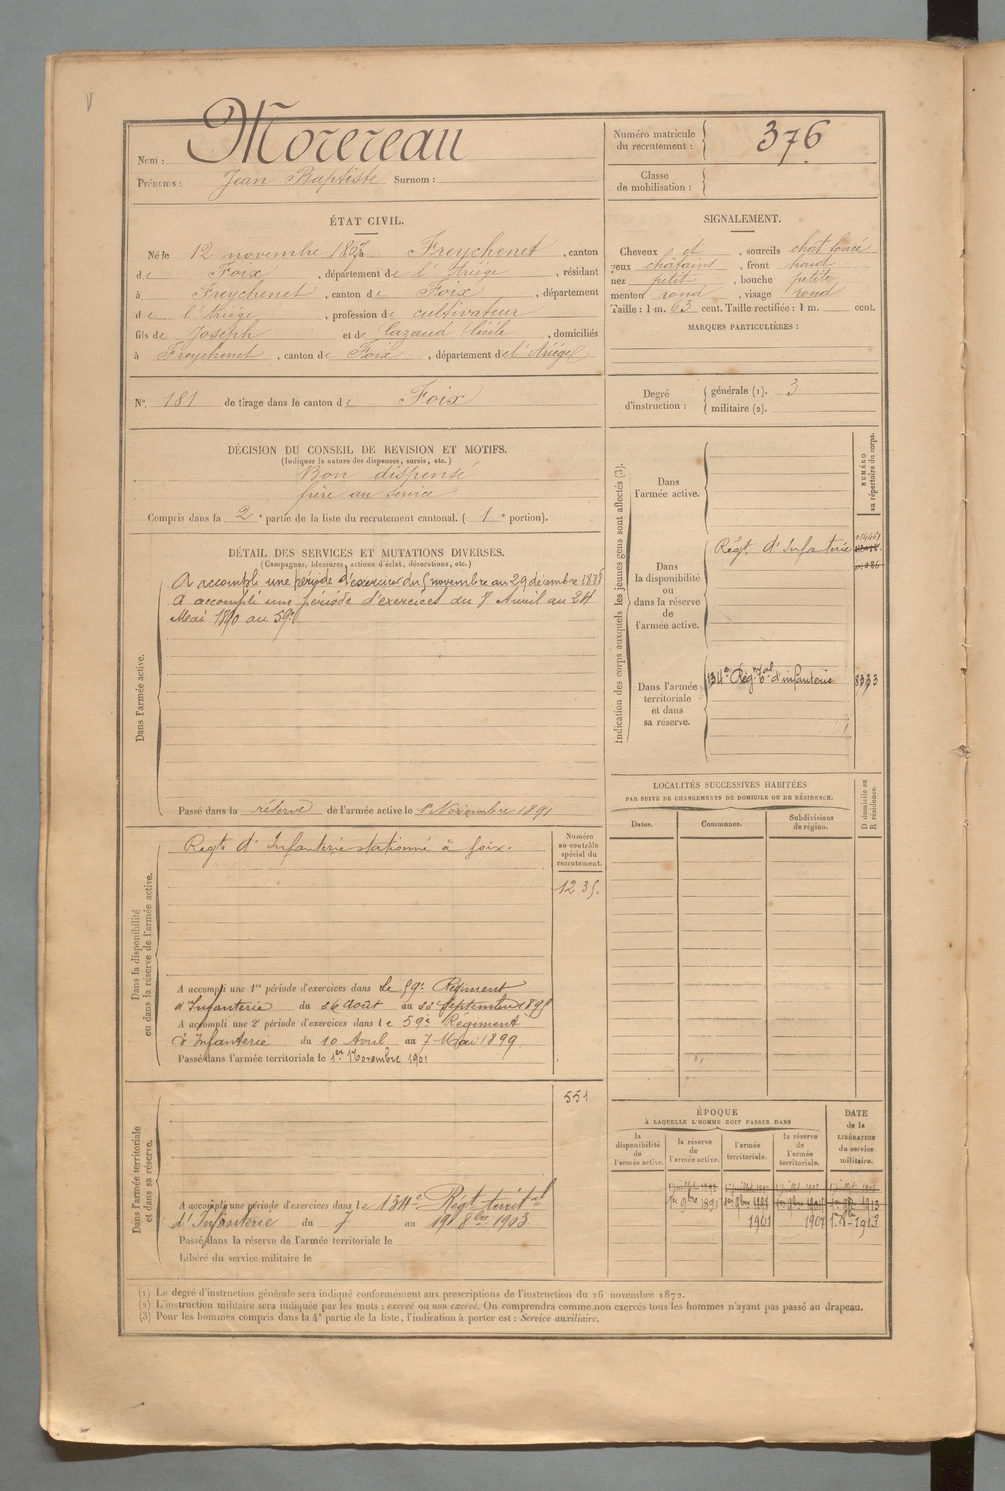 Nom : Morereau
Prénoms : Jean Baptiste Surnom :
Numéro matricule du recrutement : 376
Classe de mobilisation :
ÉTAT CIVIL.
Né le 12 novembre à Freychenet, canton
de Foix, département de l'Ariège, résidant
à Freychenet, canton de Foix, département
de l'Ariège, profession de cultivateur
fils de Joseph et de Cazaud Cécile, domiciliés
à Freychenet, canton de Foix, département de l'Ariège
SIGNALEMENT.
Cheveux et, sourcils chat foncé
yeux châtains, front haut
nez petit, bouche petite
menton rond, visage rond
Taille : 1 m. 63 cent. Taille rectifiée : 1 m. cent.
MARQUES PARTICULIÈRES :
N° 181 de tirage dans le canton de Foix
Degré d'instruction : générale (1). 3
militaire (2).
DÉCISION DU CONSEIL DE REVISION ET MOTIFS.
(Indiquer la nature des dispenses, sursis, etc.)
Bon dispensé
frère au service
Compris dans la 2e partie de la liste du recrutement cantonal. ( 1e portion).
DÉTAIL DES SERVICES ET MUTATIONS DIVERSES.
(Campagnes, blessures, actions d'éclat, décorations, etc.)
Dans l'armée active.
A accompli une période d'exercices du novembre au 29 décembre
A accompli une période d'exercices du 7 Avril au 24
Mai 1890 au 59e
Passé dans la réserve de l'armée active le 1er Novembre 1891
Indication des corps auxquels les jeunes gens sont affectés (3).
NUMÉRO au répertoire du corps.
Dans l'armée active.
Dans la disponibilité ou dans la réserve de l'armée active.
Régt d'Infanterie
Dans l'armée territoriale et dans sa réserve.
134e Régt d'infanterie
LOCALITÉS SUCCESSIVES HABITÉES
PAR SUITE DE CHANGEMENTS DE DOMICILE OU DE RÉSIDENCE.
Dates. Communes. Subdivisions de région. D domicile ou R résidence.
Dans la disponibilité ou dans la réserve de l'armée active.
Numéro au contrôle spécial du recrutement.
Régt d'Infanterie stationné à Foix.
1235.
A accompli une 1re période d'exercices dans le 59e Régiment
d'Infanterie du 26 Août au Septembre 1895
A accompli une 2e période d'exercices dans le 59e Régiment
d'Infanterie du 10 Avril au 7 Mai 1899
Passé dans l'armée territoriale le 1er Novembre 1901
Dans l'armée territoriale et dans sa réserve.
551
A accompli une période d'exercices dans le 134e Régt territal
d'Infanterie du 7 au 19 8bre 1903
Passé dans la réserve de l'armée territoriale le
Libéré du service militaire le
ÉPOQUE
À LAQUELLE L'HOMME DOIT PASSER DANS
la disponibilité de l'armée active. la réserve de l'armée active. l'armée territoriale. la réserve de l'armée territoriale.
DATE de la LIBÉRATION du service militaire.
1er 9bre 1891
1901 1907
(1) Le degré d'instruction générale sera indiqué conformément aux prescriptions de l'instruction du 26 novembre 1872.
(2) L'instruction militaire sera indiquée par les mots : exercé ou non exercé. On comprendra comme non exercés tous les hommes n'ayant pas passé au drapeau.
(3) Pour les hommes compris dans la 4e partie de la liste, l'indication à porter est : Service auxiliaire.